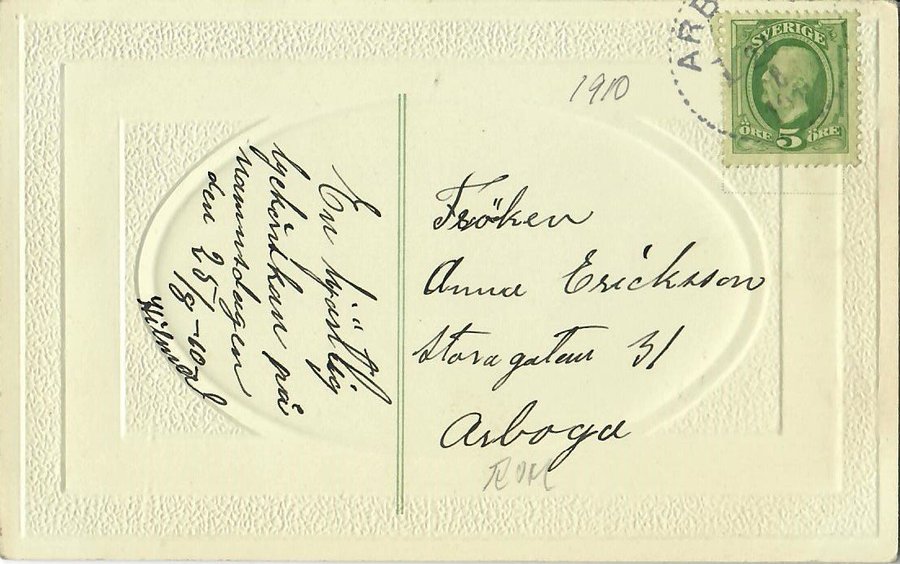 En hjärtlig
lyckönskan på
namnsdagen
den 25/8-10
Hilma
1910
ARB
SVERIGE
ÖRE 5 ÖRE
Fröken
Anna Ericksson
Storagatan 31
Arboga